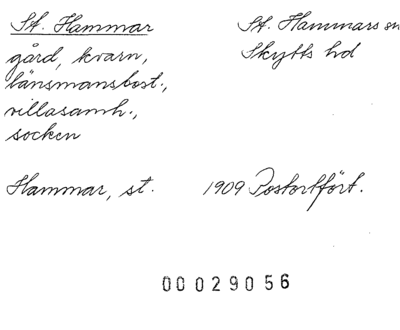 St. Hammar
St. Hammars sn
gård, kvarn,
Skytts hd
länsmansbost.,
villasamh.,
socken
Hammar, st.
1909 Postortfört.
00029056